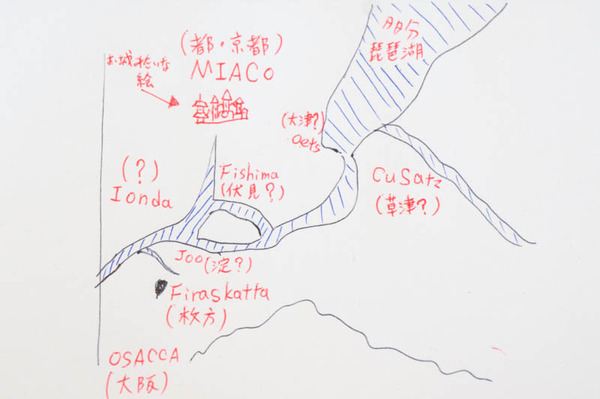 多分
琵琶湖
(都・京都)
MIACO
お城みたいな
絵
(大津?)
Oets
(?)
Ionda
Fishima
(伏見?)
Cusatz
(草津?)
Joo(淀?)
Firaskatta
(枚方)
OSACCA
(大阪)